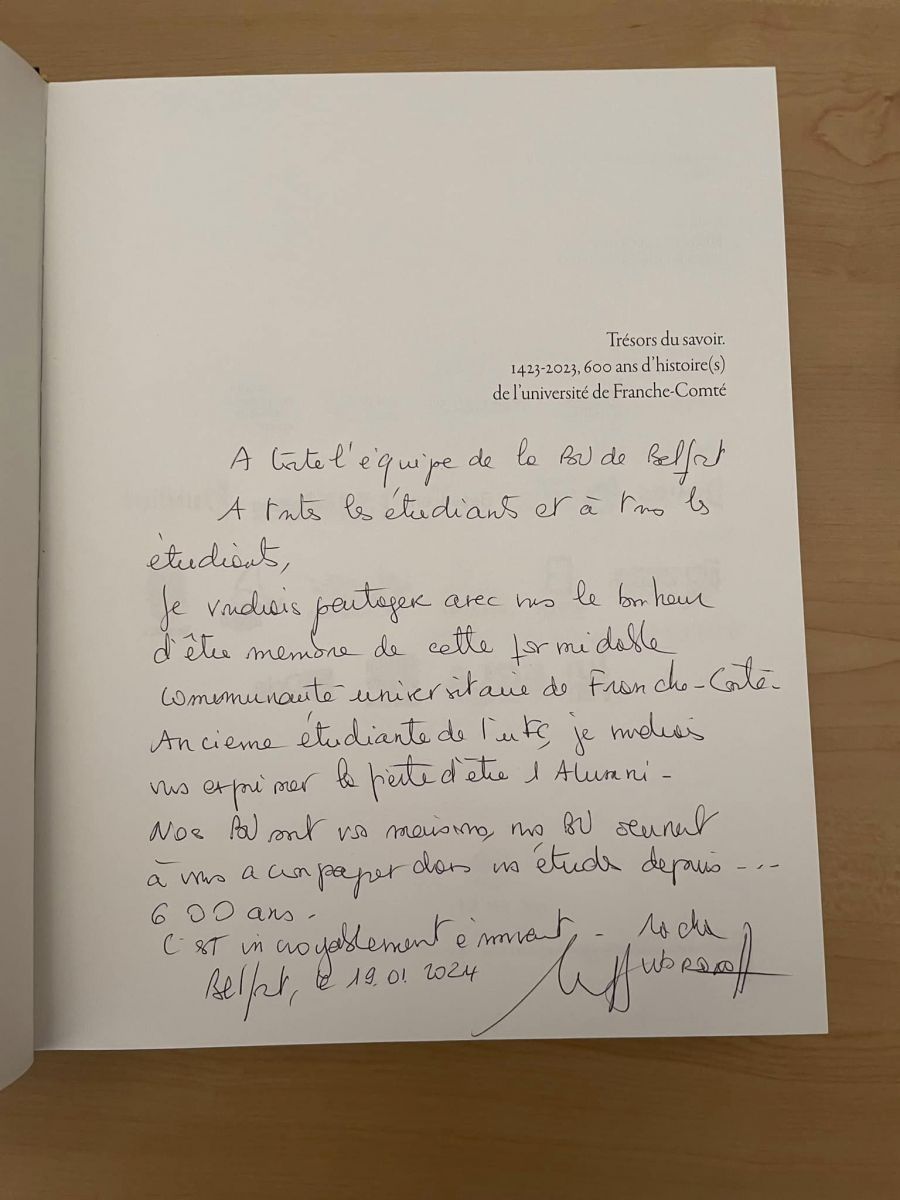 Trésors du savoir.
1423-2023, 600 ans d'histoire(s)
de l'université de Franche-Comté
A toute l'équipe de la BU de Belfort
A toutes les étudiants et à tous les
étudiants,
Je voudrais partager avec vous le bonheur
d'être membre de cette formidable
communauté universitaire de Franche-Comté.
Ancienne étudiante de l'UFC, je voudrais
vous exprimer la fierté d'être 1 Alumni -
Nos BU sont vos maisons, nos BU
à vous accompagner dans vos études depuis ---
600 ans.
C'est incroyablement émouvant -
Belfort, le 19.01.2024